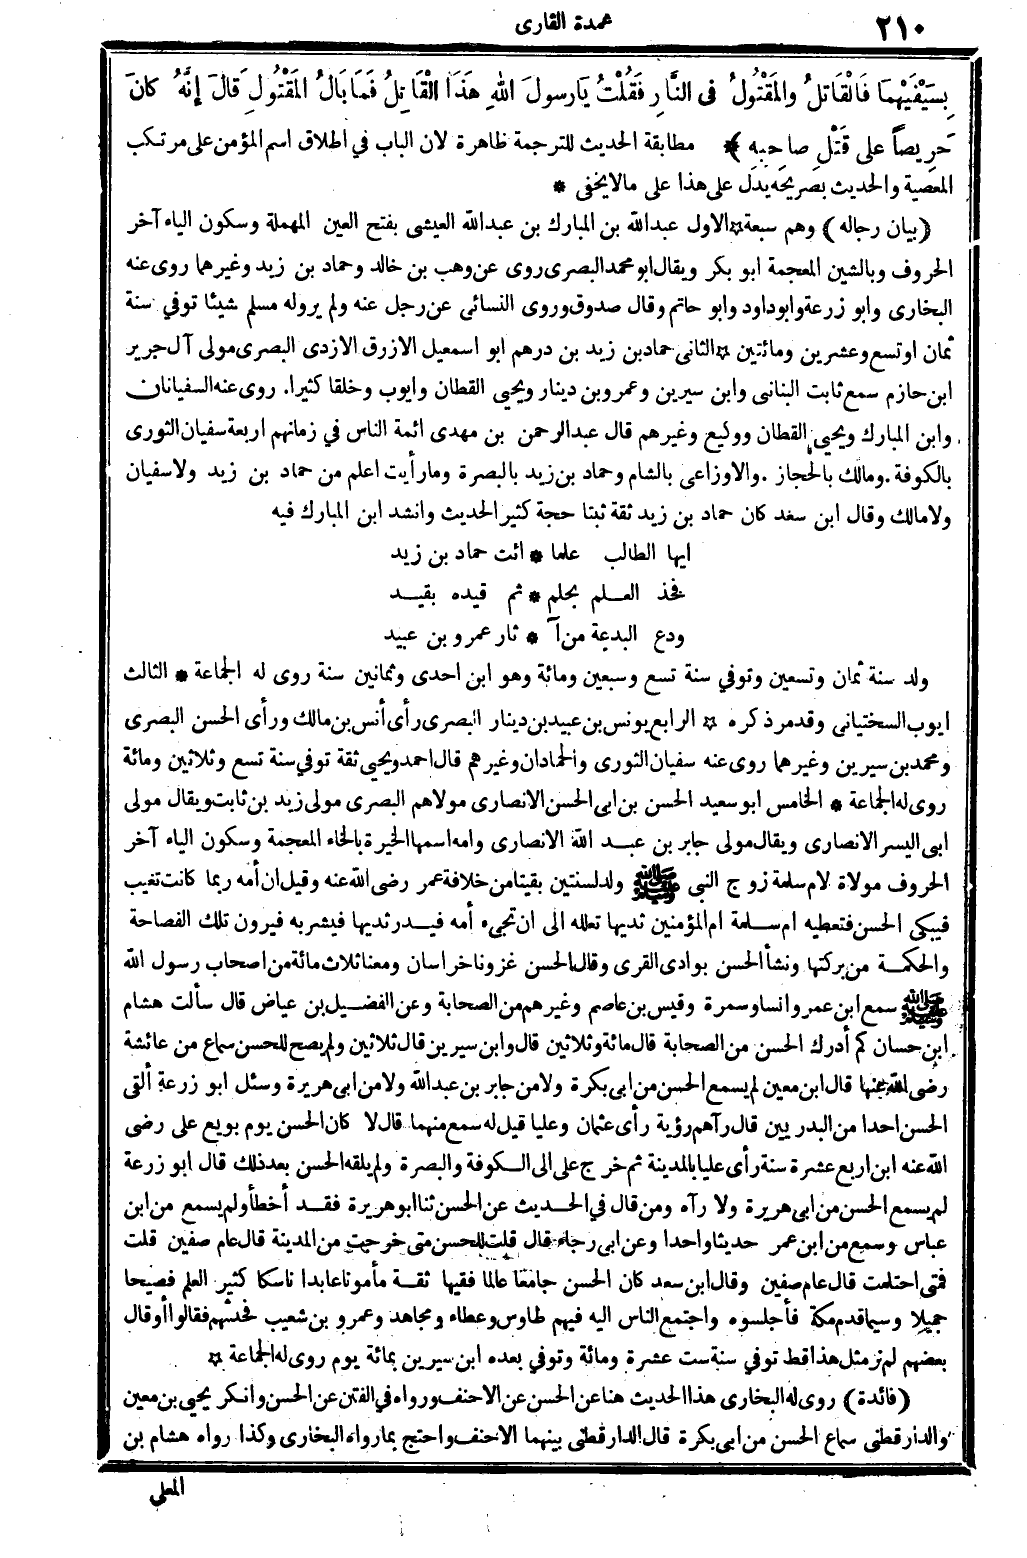 ٢١٠
عمدة القارى
بِسَيْفَيْهِمَا فَالْقَاتِلُ وَالمَقْتُولُ فى النَّارِ فَقُلْتُ يَارسولَ اللهِ هَذَا الْقَاتِلُ فَمَا بَالُ المَقْتُولِ قالَ إِنَّهُ كانَ
حَرِيصاً على قَتْلِ صاحبِهِ ﴾ * مطابقة الحديث للترجمة ظاهرة لان الباب في اطلاق اسم المؤمن على مرتكب
المعصية والحديث بصريحه يدل على هذا على مالا يخفى *
(بيان رجاله) وهم سبعة * الاول عبدالله بن المبارك بن عبدالله العيشى بفتح العين المهملة وسكون الياء آخر
الحروف وبالشين المعجمة ابو بكر ويقال ابو محمد البصرى روى عن وهب بن خالد وحماد بن زيد وغيرهما روى عنه
البخارى وابو زرعة وابو داود وابو حاتم وقال صدوق وروى النسائى عن رجل عنه ولم يروله مسلم شيئا توفي سنة
ثمان او تسع وعشرين ومائتين * الثانى حماد بن زيد بن درهم ابو اسمعيل الازرق الازدى البصرى مولى آل جرير
ابن حازم سمع ثابت البنانى وابن سيرين وعمرو بن دينار ويحيى القطان وايوب وخلقا كثيرا. روى عنه السفيانان
وابن المبارك ويحيى القطان ووكيع وغيرهم قال عبدالرحمن بن مهدى ائمة الناس في زمانهم اربعة سفيان الثورى
بالكوفة. ومالك بالحجاز. والاوزاعى بالشام وحماد بن زيد بالبصرة وما رأيت اعلم من حماد بن زيد ولا سفيان
ولا مالك وقال ابن سعد كان حماد بن زيد ثقة ثبتا حجة كثير الحديث وانشد ابن المبارك فيه
ايها الطالب علما * ائت حماد بن زيد
فخذ العلم بحلم * ثم قيده بقيد
ودع البدعة من آ * ثار عمرو بن عبيد
ولد سنة ثمان وتسعين وتوفي سنة تسع وسبعين ومائة وهو ابن احدى وثمانين سنة روى له الجماعة * الثالث
ايوب السختيانى وقد مر ذكره * الرابع يونس بن عبيد بن دينار البصرى رأى أنس بن مالك ورأى الحسن البصرى
ومحمد بن سيرين وغيرهما روى عنه سفيان الثورى والحمادان وغيرهم قال احمد ويحيى ثقة توفي سنة تسع وثلاثين ومائة
روى له الجماعة * الخامس ابو سعيد الحسن بن ابى الحسن الانصارى مولاهم البصرى مولى زيد بن ثابت ويقال مولى
ابى اليسر الانصارى ويقال مولى جابر بن عبد الله الانصارى وامه اسمها الخيرة بالخاء المعجمة وسكون الياء آخر
الحروف مولاة لام سلمة زوج النبى ﷺ ولد لسنتين بقيتا من خلافة عمر رضى الله عنه وقيل ان أمه ربما كانت تغيب
فيبكى الحسن فتعطيه ام سلمة ام المؤمنين ثديها تعلله الى ان تجىء أمه فيدر ثديها فيشربه فيرون تلك الفصاحة
والحكمة من بركتها ونشأ الحسن بوادى القرى وقال الحسن غزونا خراسان ومعنا ثلاث مائة من اصحاب رسول الله
ﷺ سمع ابن عمر وانسا وسمرة وقيس بن عاصم وغيرهم من الصحابة وعن الفضيل بن عياض قال سألت هشام
ابن حسان كم أدرك الحسن من الصحابة قال مائة وثلاثين قال وابن سيرين قال ثلاثين ولم يصح للحسن سماع من عائشة
رضى الله عنها قال ابن معين لم يسمع الحسن من ابى بكرة ولا من جابر بن عبدالله ولا من ابى هريرة وسئل ابو زرعة ألقى
الحسن احدا من البدريين قال رآهم رؤية رأى عثمان وعليا قيل له سمع منهما قال لا كان الحسن يوم بويع على رضى
الله عنه ابن اربع عشرة سنة رأى عليا بالمدينة ثم خرج على الى الكوفة والبصرة ولم يلقه الحسن بعد ذلك قال ابو زرعة
لم يسمع الحسن من ابى هريرة ولا رآه ومن قال في الحديث عن الحسن ثنا ابو هريرة فقد أخطأ ولم يسمع من ابن
عباس وسمع من ابن عمر حديثا واحدا وعن ابى رجاء قال قلت للحسن متى خرجت من المدينة قال عام صفين قلت
فمتى احتلمت قال عام صفين وقال ابن سعد كان الحسن جامعا عالما فقيها ثقة مأمونا عابدا ناسكا كثير العلم فصيحا
جميلا وسيما قدم مكة فأجلسوه واجتمع الناس اليه فيهم طاوس وعطاء ومجاهد وعمرو بن شعيب فحدثهم فقالوا أو قال
بعضهم لم نر مثل هذا قط توفي سنة ست عشرة ومائة وتوفي بعده ابن سيرين بمائة يوم روى له الجماعة *
(فائدة) روى له البخارى هذا الحديث هنا عن الحسن عن الاحنف ورواه في الفتن عن الحسن وانكر يحيى بن معين
والدارقطنى سماع الحسن من ابى بكرة قال الدارقطنى بينهما الاحنف واحتج بما رواه البخارى وكذا رواه هشام بن
المعلى